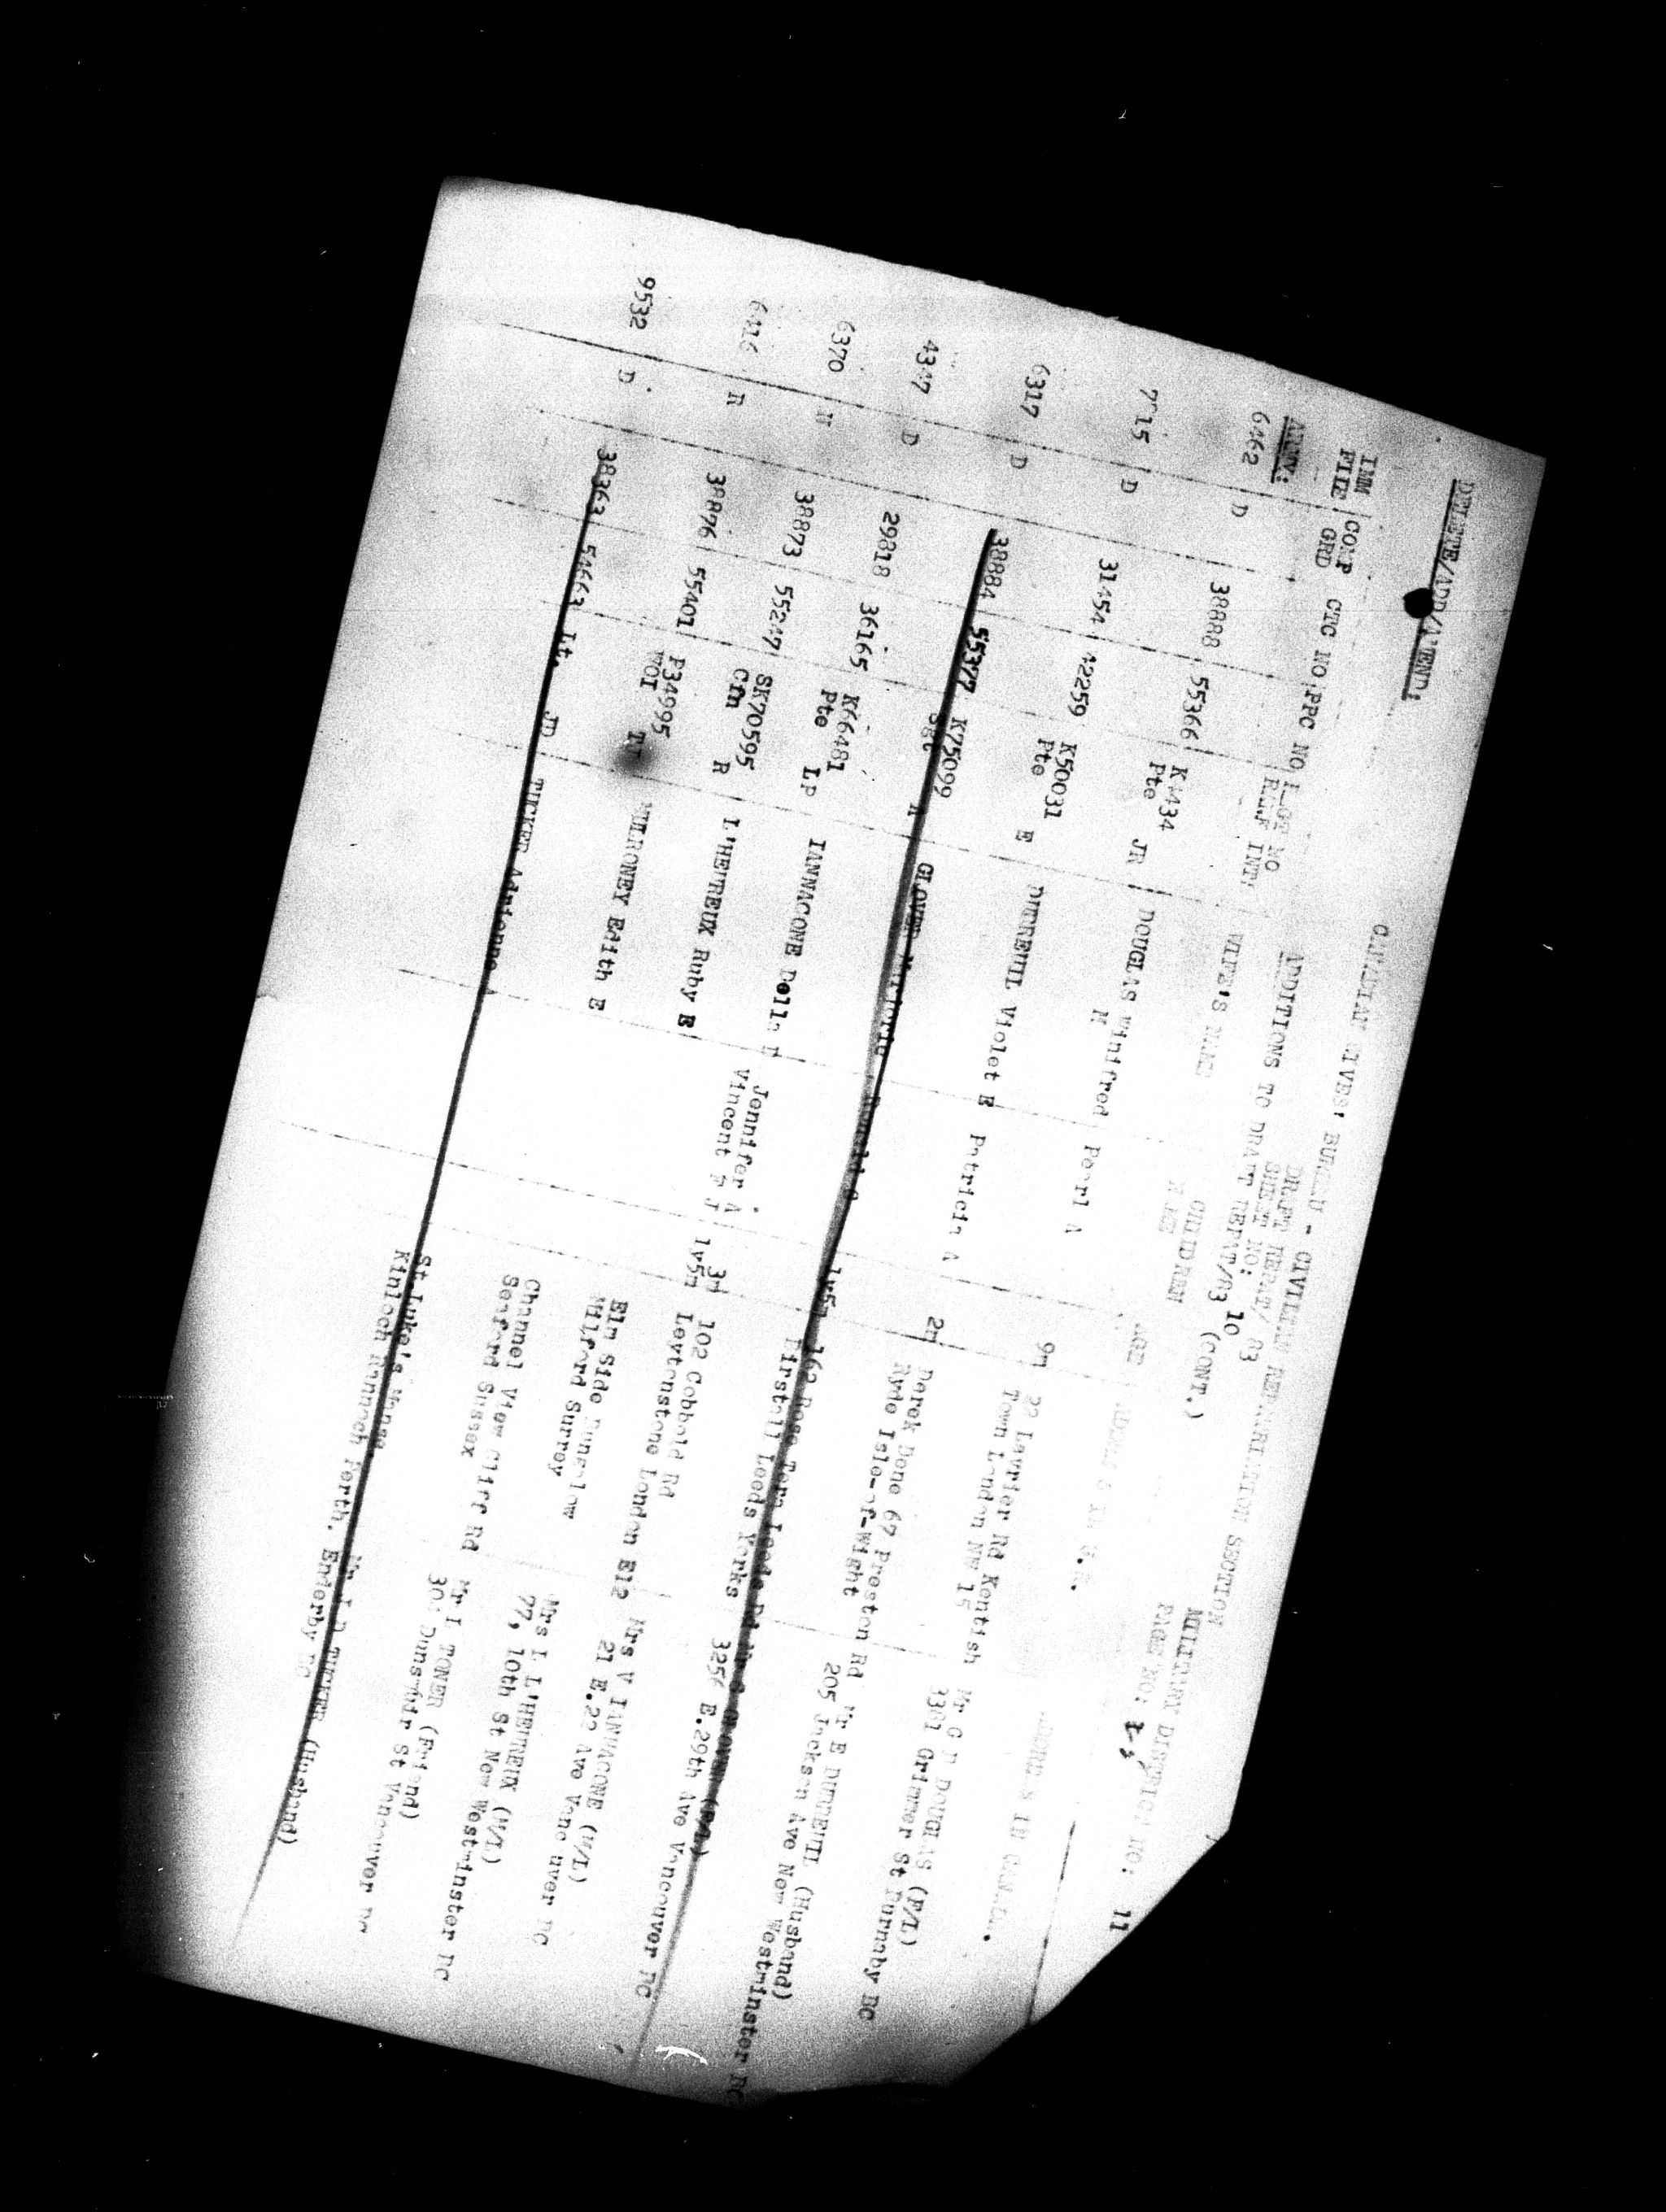 DELETE/ADD/AMEND:
CANADIAN WIVES' BUREAU - CIVILIAN REPATRIATION SECTION
ADDITIONS TO DRAFT REPAT/83 (CONT.)
DRAFT REPAT/ 83 MILITARY DISTRICT NO: 11
SHEET NO: 10 PAGE NO:
IMM FILE COMP GRD CTC NO PPC NO REGT NO R.. INT' WIFE'S NAME CHILDREN NAME AGE ADDRESS IN U.K. ADDRESS IN CANADA.
ARMY:
6462 D 38888 55366 Pte JR DOUGLAS Winifred Pearl A 9m 22 Lavrier Rd Kentish Mr G D DOUGLAS (F/L)
M Town London NW 15 3381 Grimmer St Burnaby BC
D 31454 42259 K50031 DUTREUIL Violet E Patricia A 2m Derek Dene 67 Preston Rd Mr E DUTREUIL (Husband)
Pte E Ryde Isle-of-Wight 205 Jackson Ave New Westminster BC
6317 D 38884 55377 K75099 GLOVER Marjorie 1y5m 162 Rose Terr Leeds Rd GLOVER (F/L)
Sgt Birstall Leeds Yorks E.29th Ave Vancouver BC
4347 D 29818 36165 K66481 IANNACONE Jennifer A 3m 102 Cobbold Rd Mrs V IANNACONE (M/L)
Pte LP Vincent P J 1y5m Leytonstone London E12 21 E.22 Ave Vancouver BC
6370 38873 55247 SK70595 L'HEUREUX Ruby E Elm Side Mrs L L'HEUREUX (M/L)
Cfn R Milford Surrey 77, 10th St New Westminster BC
38876 55401 P34995 MULRONEY Edith E Channel View Cliff Rd Mr I TONER (Friend)
WOI Seaford Sussex Dunsmuir St Vancouver BC
9532 D 38363 54663 Lt. JD TUCKER Adrienne A St.Luke's Manse TUCKER (Husband)
Kinloch Rannoch Perth. Enderby BC